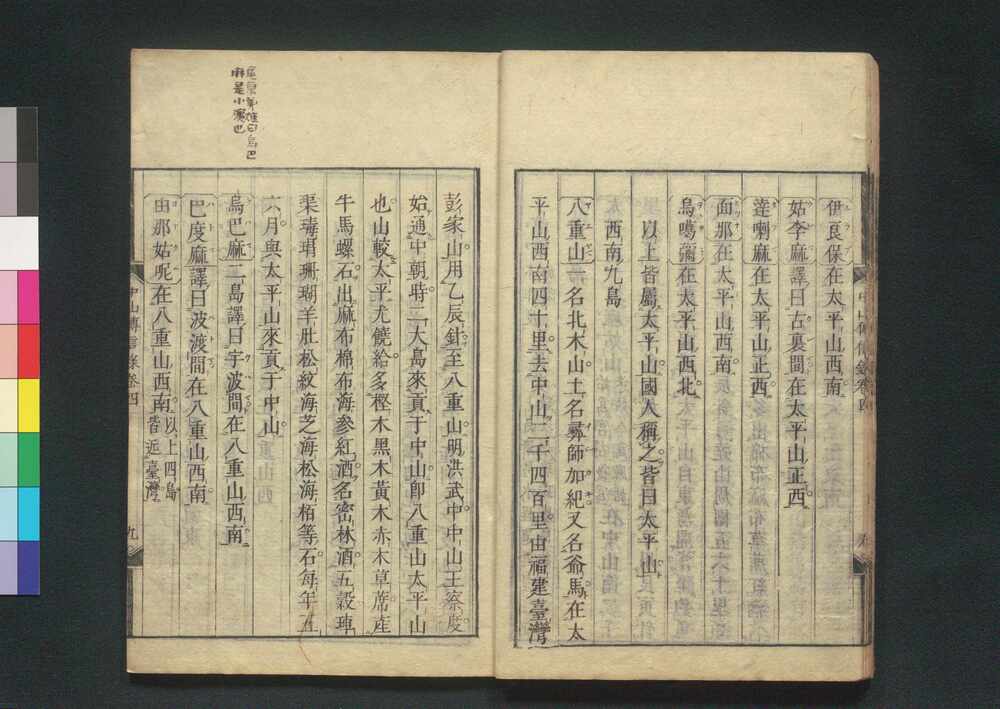 伊良保在太平山西南
姑李麻譯曰古裏間在太平山正西
達喇麻在太平山正西
面那在太平山西南
烏噶彌在太平山西北
以上皆屬太平山國人稱之皆曰太平山
西南九島
八重山一名北木山土名彝師加紀又名爺馬在太
平山西南四十里去中山二千四百里由福建臺灣
彭家山用乙辰針至八重山明洪武中中山王察度
始通中朝時二大島來貢于中山卽八重山太平山
也山較太平尤饒給多樫木黑木黃木赤木草蓆產
牛馬螺石出麻布棉布海參紅酒名密林酒五穀硨
渠瑇瑁珊瑚羊肚松紋海芝海松海栢等石每年五
六月與太平山來貢于中山
烏巴麻二島譯曰宇波間在八重山西南
巴度麻譯曰波渡間在八重山西南
由那姑呢在八重山西南以上四島
皆近臺灣
中山傳信錄卷四
九
烏巴
麻是小濱也